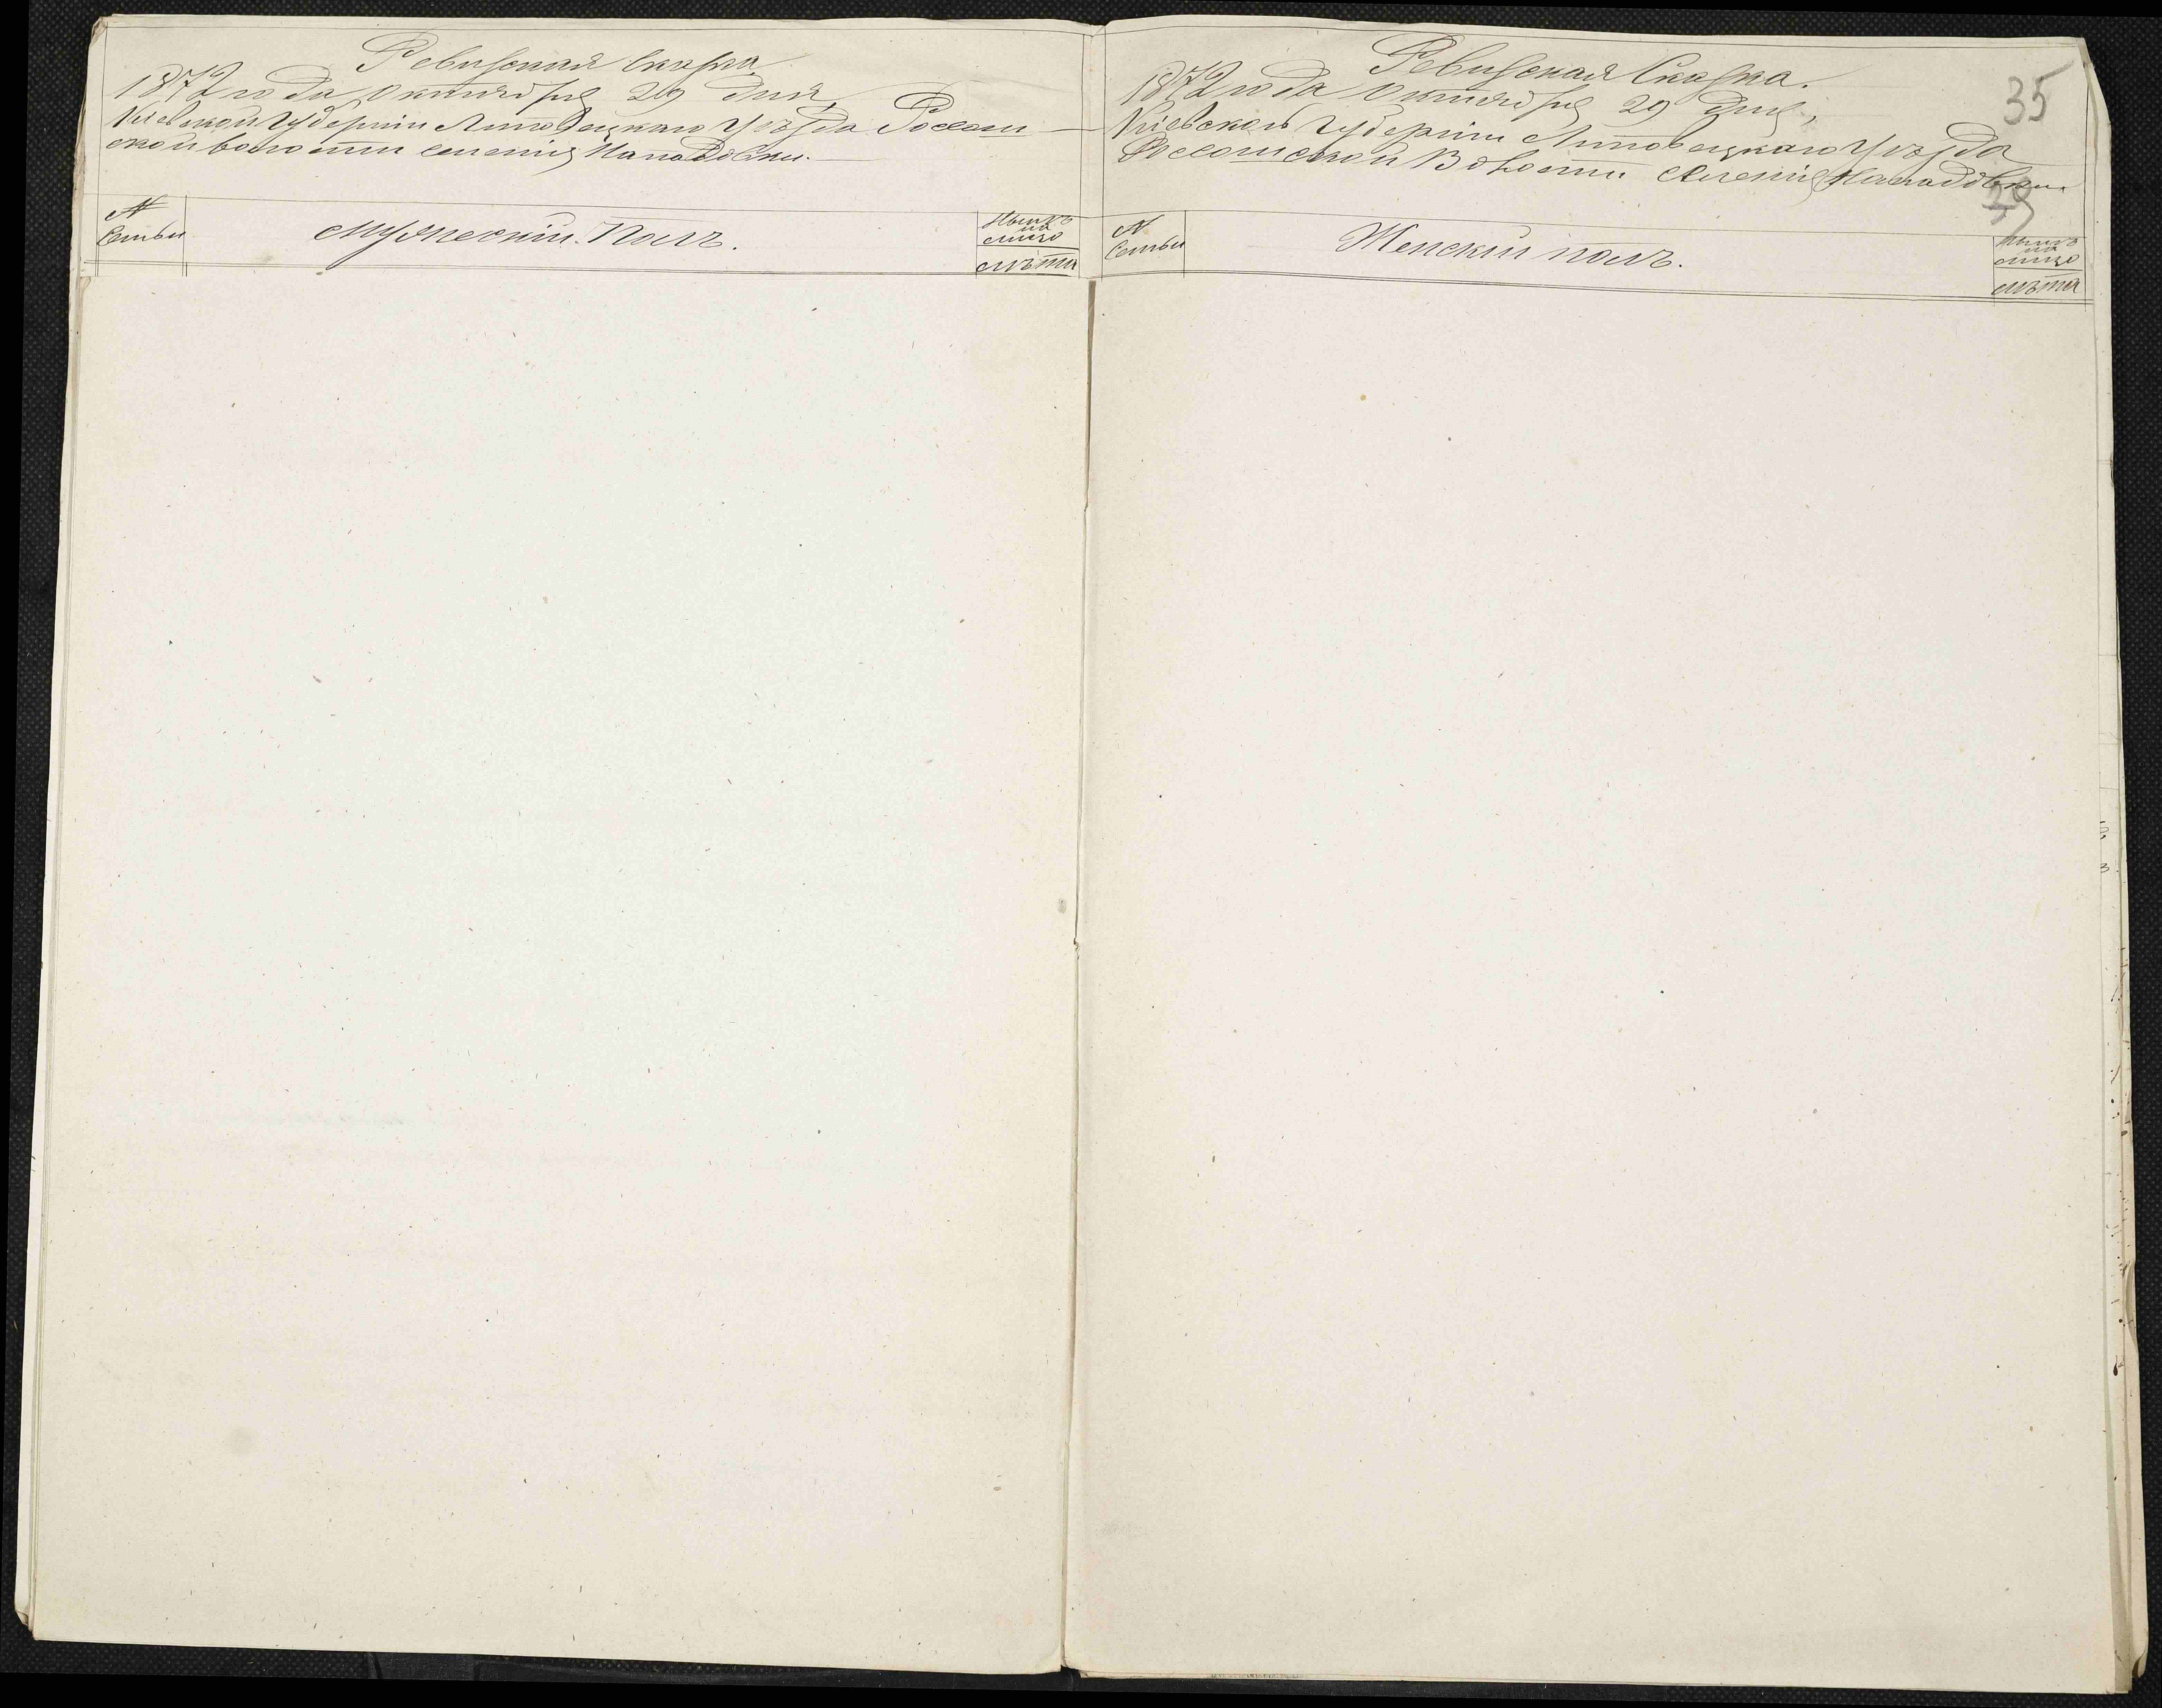 Ревизская Сказка
1872 года Октября 29 дня
Киевской Губернии Липовецкаго Уезда Россош
ской волости селения Нападовки.
№
Семьи
Мужеский Полъ.
Нынѣ
на
лицо
лѣта
Ревизская Сказка.
35
1872 года Октября 29 дня,
Киевской Губернии Липовецкаго Уѣзда
Россошской Волости Селения Нападовки
№
Семьи
Женский полъ.
Нынѣ
на
лицо
лѣта